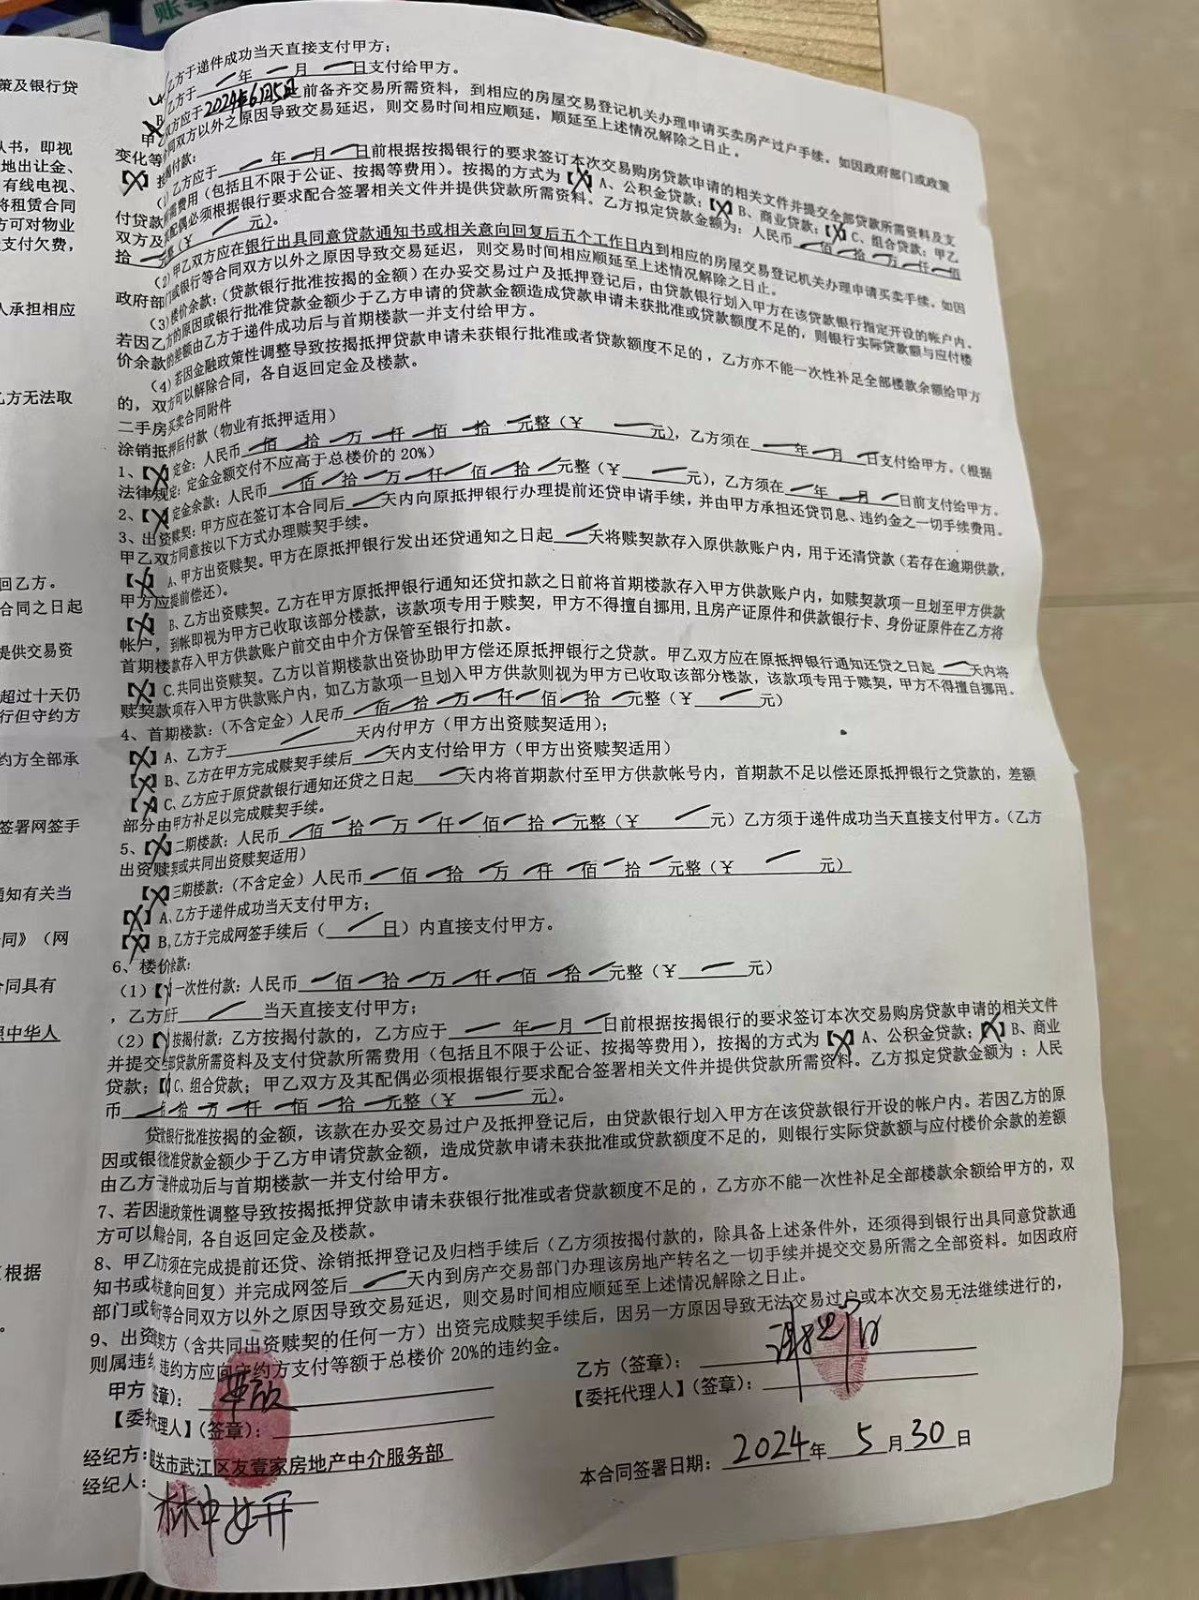 账号
策及银行贷
人书，即视
地出让金、
有线电视、
将租赁合同
方可对物业
支付欠费，
人承担相应
乙方无法取
回乙方。
合同之日起
提供交易资
超过十天仍
行但守约方
约方全部承
签署网签手
通知有关当
同》（网
合同具有
照中华人
根据
乙方于递件成功当天直接支付甲方；
B 乙方于 一 年 一 月 一 日支付给甲方。
甲乙双方应于2024年6月5日前备齐交易所需资料，到相应的房屋交易登记机关办理申请买卖房产过户手续。如因政府部门或政策
变化等合同双方以外之原因导致交易延迟，则交易时间相应顺延，顺延至上述情况解除之日止。
【X】按揭付款：
(1)乙方应于 一 年 一 月 一 日前根据按揭银行的要求签订本次交易购房贷款申请的相关文件并提交全部贷款所需资料及支
付贷款所需费用（包括且不限于公证、按揭等费用）。按揭的方式为【X】A、公积金贷款；【X】B、商业贷款；【X】C、组合贷款；甲乙
双方及其配偶必须根据银行要求配合签署相关文件并提供贷款所需资料。乙方拟定贷款金额为：人民币 一 佰 一 拾 一 万 一 仟 一 佰
拾 一 元整（￥ 一 元）。
(2)甲乙双方应在银行出具同意贷款通知书或相关意向回复后五个工作日内到相应的房屋交易登记机关办理申请买卖手续。如因
政府部门或银行等合同双方以外之原因导致交易延迟，则交易时间相应顺延至上述情况解除之日止。
(3)楼价余款：（贷款银行批准按揭的金额）在办妥交易过户及抵押登记后，由贷款银行划入甲方在该贷款银行指定开设的帐户内。
若因乙方的原因或银行批准贷款金额少于乙方申请的贷款金额造成贷款申请未获批准或贷款额度不足的，则银行实际贷款额与应付楼
价余款的差额由乙方于递件成功后与首期楼款一并支付给甲方。
(4)若因金融政策性调整导致按揭抵押贷款申请未获银行批准或者贷款额度不足的，乙方亦不能一次性补足全部楼款余额给甲方
的，双方可以解除合同，各自返回定金及楼款。
二手房买卖合同附件
涂销抵押后付款（物业有抵押适用）
1、【X】定金：人民币 一 佰 一 拾 一 万 一 仟 一 佰 一 拾 一 元整（￥ 一 元），乙方须在 一 年 一 月 一 日支付给甲方。（根据
法律规定：定金金额交付不应高于总楼价的20%）
2、【X】定金余款：人民币 一 佰 一 拾 一 万 一 仟 一 佰 一 拾 一 元整（￥ 一 元），乙方须在 一 年 一 月 一 日前支付给甲方。
3、出资赎契：甲方应在签订本合同后 一 天内向原抵押银行办理提前还贷申请手续，并由甲方承担还贷罚息、违约金之一切手续费用。
甲乙双方同意按以下方式办理赎契手续。
【X】A、甲方出资赎契。甲方在原抵押银行发出还贷通知之日起 一 天将赎契款存入原供款账户内，用于还清贷款（若存在逾期供款，
甲方应提前偿还）。
【X】B、乙方出资赎契。乙方在甲方原抵押银行通知还贷扣款之日前将首期楼款存入甲方供款账户内，如赎契款项一旦划至甲方供款
帐户，到帐即视为甲方已收取该部分楼款，该款项专用于赎契，甲方不得擅自挪用，且房产证原件和供款银行卡、身份证原件在乙方将
首期楼款存入甲方供款账户前交由中介方保管至银行扣款。
【X】C.共同出资赎契。乙方以首期楼款出资协助甲方偿还原抵押银行之贷款。甲乙双方应在原抵押银行通知还贷之日起 一 天内将
赎契款项存入甲方供款账户内，如乙方款项一旦划入甲方供款则视为甲方已收取该部分楼款，该款项专用于赎契，甲方不得擅自挪用。
4、首期楼款：（不含定金）人民币 一 佰 一 拾 一 万 一 仟 一 佰 一 拾 一 元整（￥ 一 元）
【X】A、乙方于 一 天内付甲方（甲方出资赎契适用）；
【X】B、乙方在甲方完成赎契手续后 一 天内支付给甲方（甲方出资赎契适用）
【X】C、乙方应于原贷款银行通知还贷之日起 一 天内将首期款付至甲方供款帐号内，首期款不足以偿还原抵押银行之贷款的，差额
部分由甲方补足以完成赎契手续。
5、【X】二期楼款：人民币 一 佰 一 拾 一 万 一 仟 一 佰 一 拾 一 元整（￥ 一 元）乙方须于递件成功当天直接支付甲方。（乙方
出资赎契或共同出资赎契适用）
【X】三期楼款：（不含定金）人民币 一 佰 一 拾 一 万 一 仟 一 佰 一 拾 一 元整（￥ 一 元）
【X】A、乙方于递件成功当天支付甲方；
【X】B、乙方于完成网签手续后（ 一 日）内直接支付甲方。
6、楼价余款：
（1）【\】一次性付款：人民币 一 佰 一 拾 一 万 一 仟 一 佰 一 拾 一 元整（￥ 一 元）
，乙方于 一 当天直接支付甲方；
（2）【\】按揭付款：乙方按揭付款的，乙方应于 一 年 一 月 一 日前根据按揭银行的要求签订本次交易购房贷款申请的相关文件
并提交全部贷款所需资料及支付贷款所需费用（包括且不限于公证、按揭等费用），按揭的方式为【X】A、公积金贷款；【X】B、商业
贷款；【\】C.组合贷款；甲乙双方及其配偶必须根据银行要求配合签署相关文件并提供贷款所需资料。乙方拟定贷款金额为：人民
币 一 佰 一 拾 一 万 一 仟 一 佰 一 拾 一 元整（￥ 一 元）。
贷款银行批准按揭的金额，该款在办妥交易过户及抵押登记后，由贷款银行划入甲方在该贷款银行开设的帐户内。若因乙方的原
因或银行批准贷款金额少于乙方申请贷款金额，造成贷款申请未获批准或贷款额度不足的，则银行实际贷款额与应付楼价余款的差额
由乙方于递件成功后与首期楼款一并支付给甲方。
7、若因金融政策性调整导致按揭抵押贷款申请未获银行批准或者贷款额度不足的，乙方亦不能一次性补足全部楼款余额给甲方的，双
方可以解除合同，各自返回定金及楼款。
8、甲乙双方须在完成提前还贷、涂销抵押登记及归档手续后（乙方须按揭付款的，除具备上述条件外，还须得到银行出具同意贷款通
知书或相关意向回复）并完成网签后 一 天内到房产交易部门办理该房地产转名之一切手续并提交交易所需之全部资料。如因政府
部门或银行等合同双方以外之原因导致交易延迟，则交易时间相应顺延至上述情况解除之日止。
9、出资赎契方（含共同出资赎契的任何一方）出资完成赎契手续后，因另一方原因导致无法交易过户或本次交易无法继续进行的，
则属违约，违约方应向守约方支付等额于总楼价20%的违约金。
甲方（签章）：
乙方（签章）：
【委托代理人】（签章）：
【委托代理人】（签章）：
经纪方：韶关市武江区友壹家房地产中介服务部
经纪人：
本合同签署日期：2024年 5 月 30 日